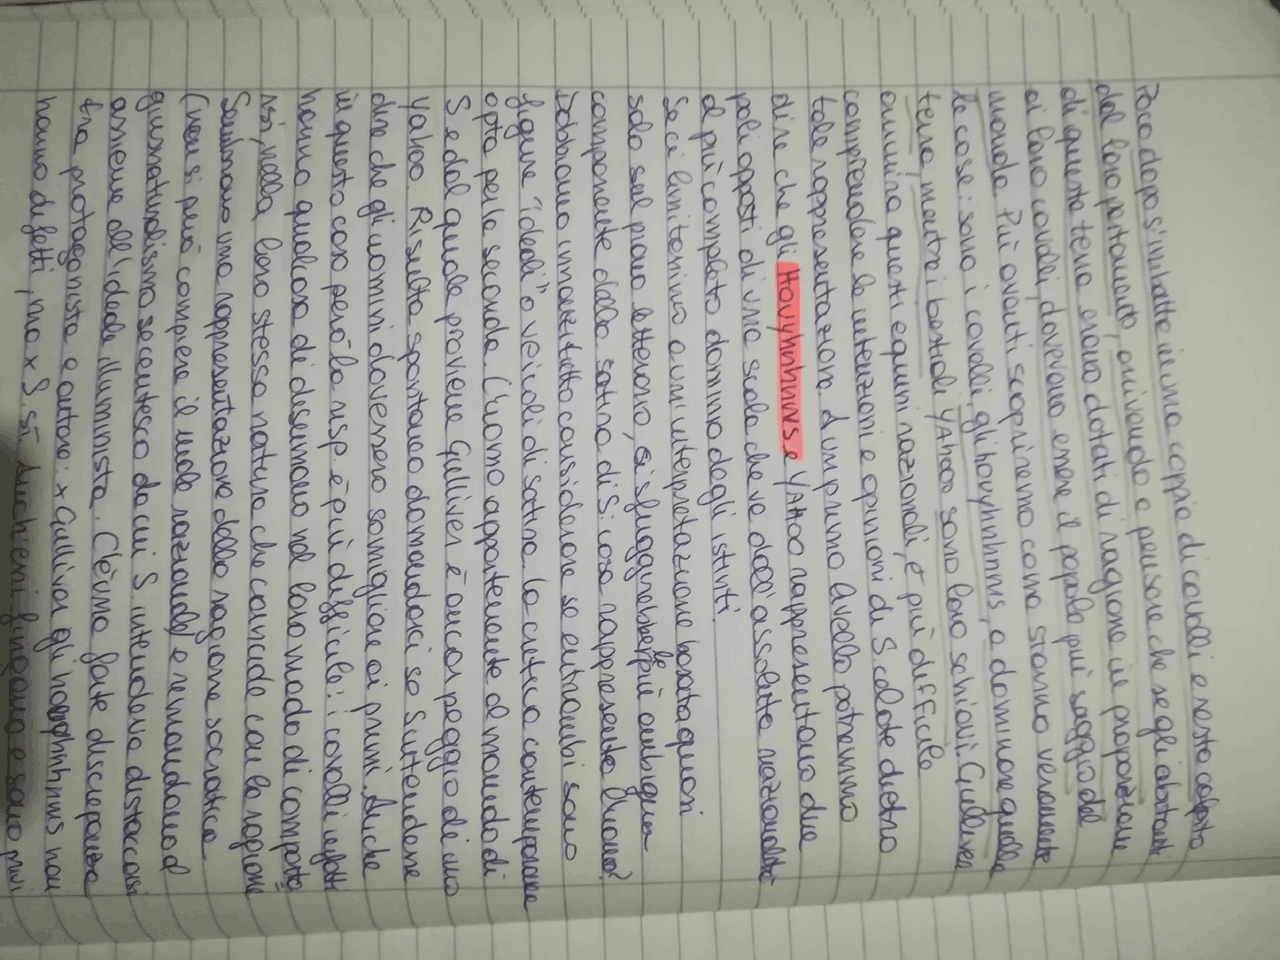 Poco dopo s'imbatte in una coppia di cavalli e resta colpito
dal loro portamento, arrivando a pensare che se gli abitanti
di questa terra erano dotati di ragione in proporzione
ai loro cavalli, dovevano essere il popolo più saggio del
mondo. Più avanti scopriremo come stanno veramente
le cose: sono i cavalli, gli houyhnhnms, a dominare quella
terra, mentre i bestiali YAHOO sono loro schiavi. Gulliver
ammira questi equini razionali, è più difficile
comprendere le intenzioni e opinioni di S. celate dietro
tale rappresentazione. A un primo livello potremmo
dire che gli Houyhnhnms e YAHOO rappresentano due
poli opposti di una scala che va dall'assoluta razionalità
al più completo dominio degli istinti.
Se ci limitassimo a un'interpretazione basata quasi
solo sul piano letterario, ci sfuggirebbe la più ambigua
componente della satira di S: cosa rappresenta l'uomo?
Dobbiamo innanzitutto considerare se entrambi sono
figure "ideali" o veicoli di satira. La critica contemporanea
opta per la seconda. L'uomo appartenente al mondo di
S e dal quale proviene Gulliver è ancor peggio di uno
yahoo. Risulta spontaneo domandarci se S intendesse
dire che gli uomini dovessero somigliare ai primi. Anche
in questo caso però la risp è più difficile: i cavalli infatti
hanno qualcosa di disumano nel loro modo di comporta=
rsi, nella loro stessa natura che coincide con la ragione
Sembrano una rappresentazione della ragione socratica
(non si può compiere il male razionale) e rimandano al
giusnaturalismo secentesco da cui S intendeva distaccarsi
assieme all'ideale illuminista. C'è una forte discrepanza
tra protagonista e autore: x Gulliver gli houyhnhnms non
hanno difetti, ma x S sì. Anch'essi fingono e sono privi